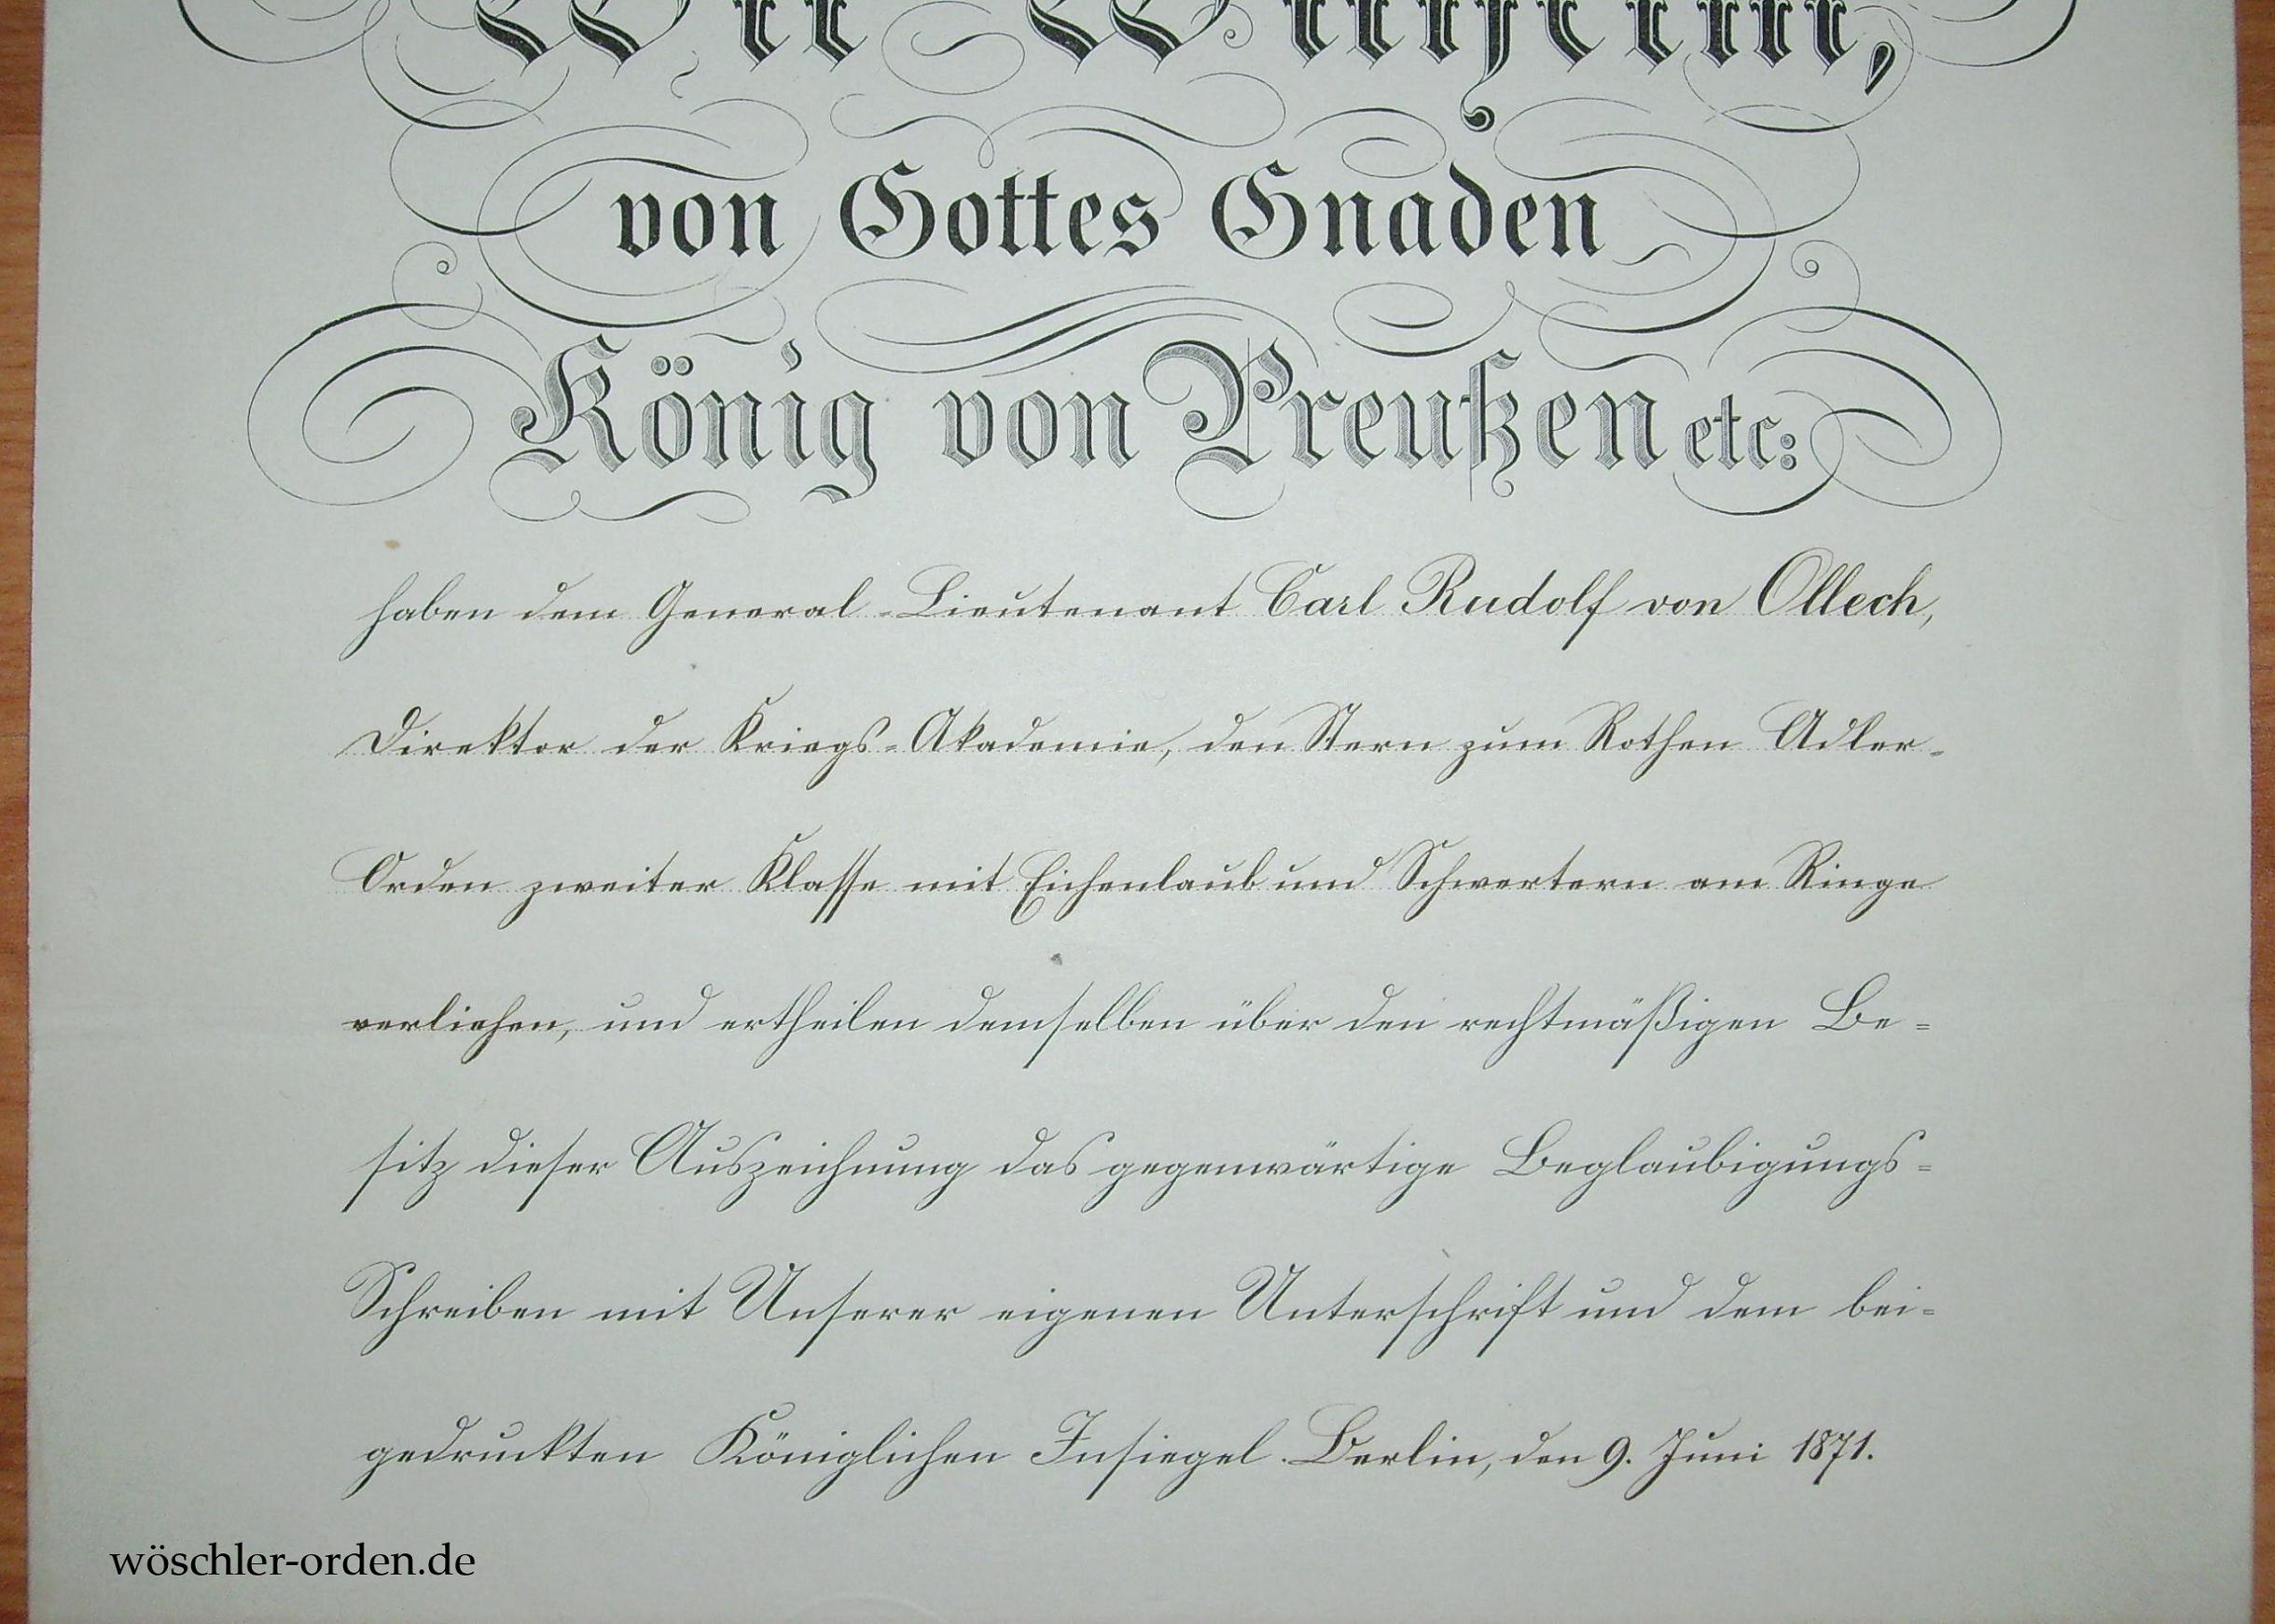 Wir Wilhelm,
von Gottes Gnaden
König von Preußen etc:
haben dem General-Lieutenant Carl Rudolf von Ollech,
Direktor der Kriegs-Akademie, den Stern zum Rothen Adler-
Orden zweiter Klasse mit Eichenlaub und Schwertern am Ringe
verliehen, und ertheilen demselben über den rechtmäßigen Be-
sitz dieser Auszeichnung das gegenwärtige Beglaubigungs-
Schreiben mit Unserer eigenen Unterschrift und dem bei-
gedruckten Königlichen Insiegel. Berlin, den 9. Juni 1871.
wöschler-orden.de